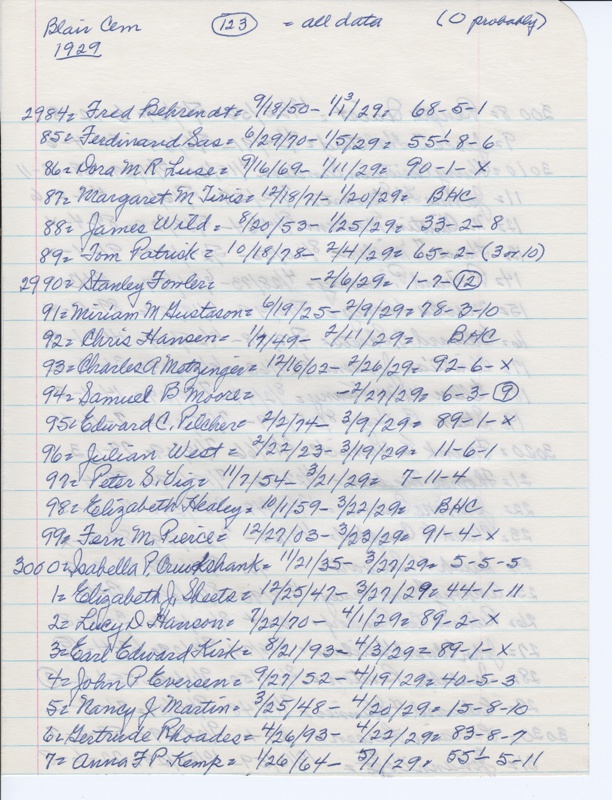 Blair Cem (123) = all data (O probably)
1929
2984 = Fred Behrendt = 9/18/50 - 1/3/29 = 68-5-1
85 = Ferdinand Sas = 6/29/70 - 1/5/29 = 55½-8-6
86 = Dora M R Luse = 9/16/69 - 1/11/29 = 90-1-x
87 = Margaret M Tivis = 12/18/71 - 1/20/29 = BHC
88 = James Wild = 8/20/53 - 1/25/29 = 33-2-8
89 = Tom Patrick = 10/18/78 - 2/4/29 = 65-2-(3 or 10)
2990 = Stanley Fowler = - 2/6/29 = 1-7-(12)
91 = Miriam M Gustason = 6/19/25 - 2/9/29 = 78-3-10
92 = Chris Hansen = 1/7/49 - 2/11/29 = BHC
93 = Charles A Motzinger = 12/16/02 - 2/26/29 = 92-6-x
94 = Samuel B Moore = - 2/27/29 = 6-3-(9)
95 = Edward C. Pilcher = 2/2/74 - 3/9/29 = 89-1-x
96 = Julian West = 2/22/23 - 3/19/29 = 11-6-1
97 = Peter S. Vig = 11/7/54 - 3/21/29 = 7-11-4
98 = Elizabeth Healey = 10/1/59 - 3/22/29 = BHC
99 = Fern M. Pierce = 12/27/03 - 3/23/29 = 91-4-x
3000 = Isabella P. Cruikshank = 11/21/35 - 3/27/29 = 5-5-5
1 = Elizabeth J. Sheets = 12/25/47 - 3/27/29 = 44-1-11
2 = Lucy D Hanson = 7/22/70 - 4/1/29 = 89-2-x
3 = Earl Edward Kirk = 8/21/93 - 4/3/29 = 89-1-x
4 = John P Eversen = 9/27/52 - 4/19/29 = 40-5-3
5 = Nancy J Martin = 3/25/48 - 4/20/29 = 15-8-10
6 = Gertrude Rhoades = 4/26/93 - 4/22/29 = 83-8-7
7 = Anna F P Kemp = 1/26/64 - 5/1/29 = 55½-5-11